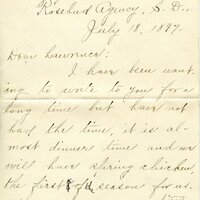 Rosebud Agency, S. D.,
July 18, 1897.
Dear Lawrence:
I have been want-
ing to write to you for a
long time but have not
had the time, it is al-
most dinner time and we
will have spring chicken
the first of the season for us.